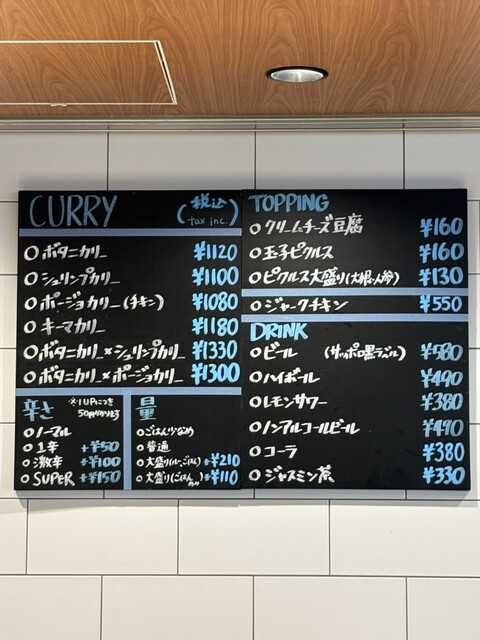 CURRY (税込 tax inc.)
○ボタニカリー ¥1120
○シュリンプカリー ¥1100
○ポージョカリー(チキン) ¥1080
○キーマカリー ¥1180
○ボタニカリー×シュリンプカリー ¥1330
○ボタニカリー×ポージョカリー ¥1300
辛さ ※1UPにつき
50円かかります
○ノーマル
○1辛 +¥50
○激辛 +¥100
○SUPER +¥150
量
○ごはん少なめ
○普通
○大盛り(ルー・ごはん) +¥210
○大盛り(ごはんのみ) +¥110
TOPPING
○クリームチーズ豆腐 ¥160
○玉子ピクルス ¥160
○ピクルス大盛り(大根・人参) ¥130
○ジャークチキン ¥550
DRINK
○ビール (サッポロ黒ラベル) ¥580
○ハイボール ¥490
○レモンサワー ¥380
○ノンアルコールビール ¥490
○コーラ ¥380
○ジャスミン茶 ¥330